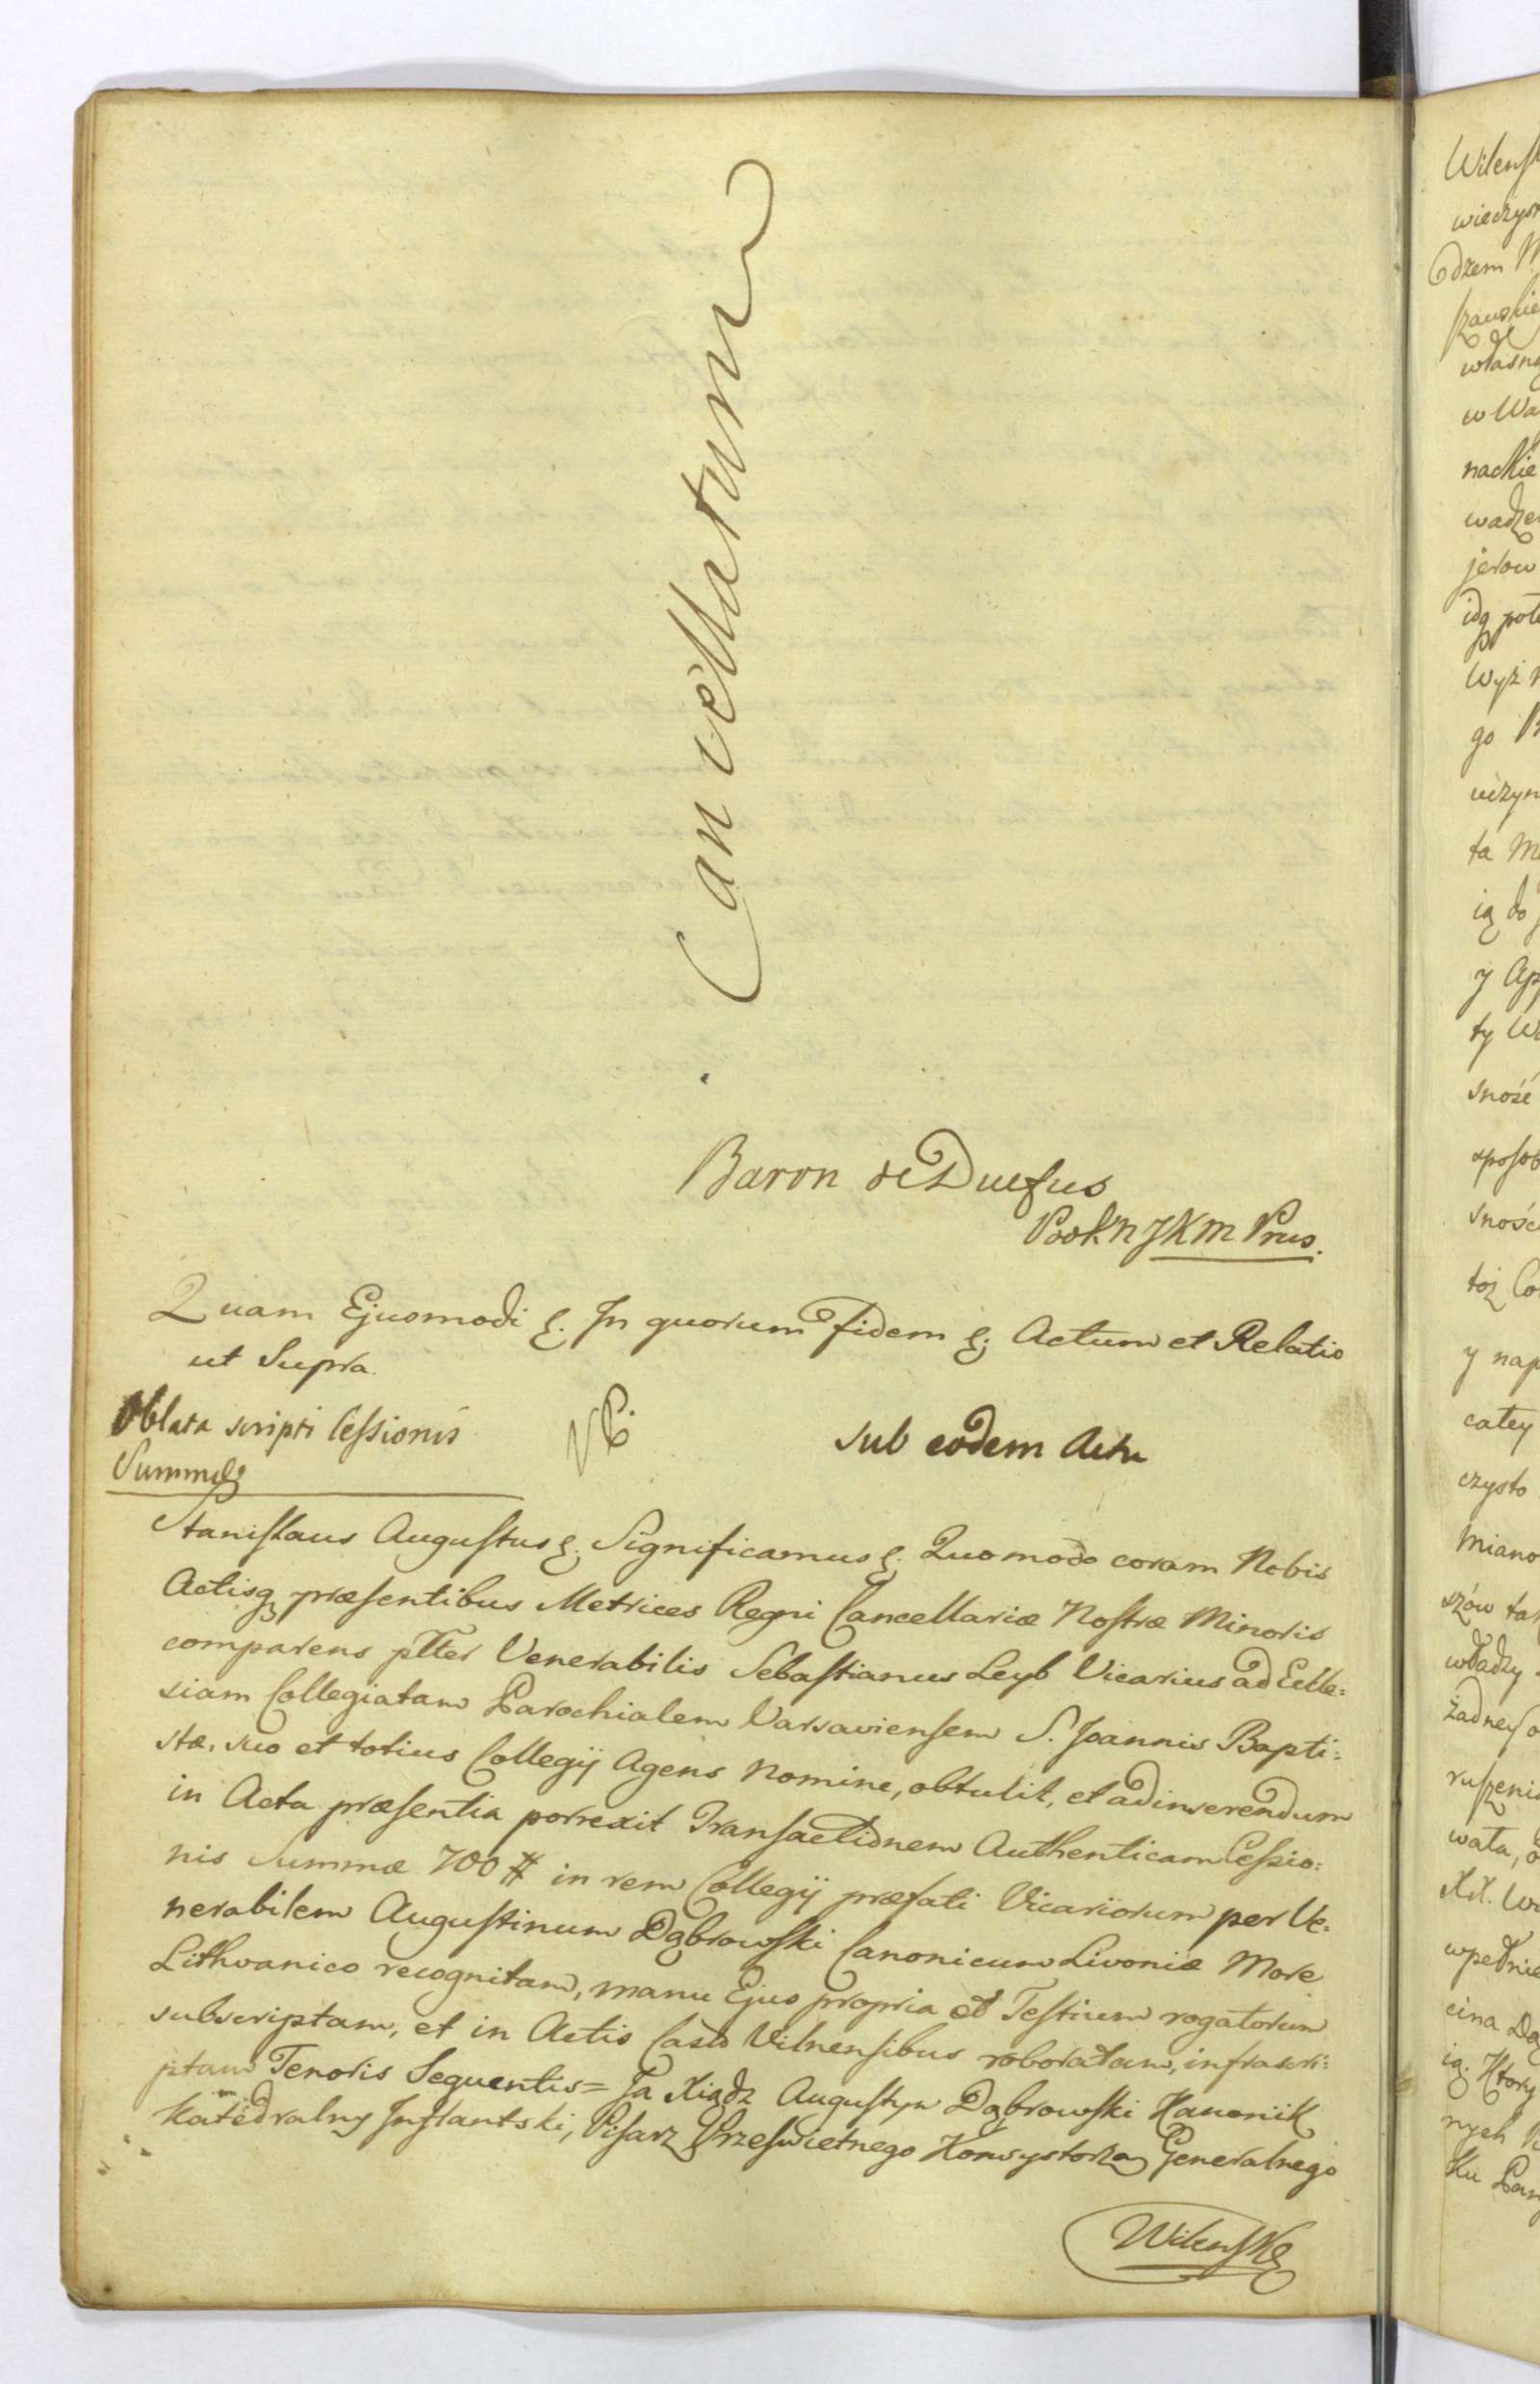 Cancellatum
Baron de Duefus
Pook'n JKM Prus.
Quam Ejusmodi &. In quorum fidem &. Actum et Relatio
ut Supra.
Oblata scripti Cessionis
Summæ
NB.
sub eodem Actu
Stanislaus Augustus &. Significamus &. Quomodo coram Nobis
Actisq præsentibus Metrices Regni Cancellariæ Nostræ Minoris
comparens plter Venerabilis Sebastianus Leyb Vicarius ad Eccle=
siam Collegiatam Parochialem Varsaviensem S. Joannis Bapti=
stæ, suo et totius Collegij Agens Nomine, obtulit, et ad inserendum
in Acta præsentia porrexit Transactionem Authenticam Cessio=
nis Summæ 700 # in rem Collegij præfati Vicariorum per Ve=
nerabilem Augustinum Dąbrowski Canonicum Livoniæ More
Lithvanico recognitam, manu Ejus propria et Testium rogatorum
subscriptam, et in Actis Castr Vilnensibus roboratam, infrascri=
ptam Tenoris Sequentis= Ja Xiądz Augustyn Dąbrowski Kanonik
Katedralny Inflantski, Pisarz Prześwietnego Konsystorza Generalnego
Wilenskę
Wilensk
wieczys
dzem
szawskie
własn
w Wa
nackie
wadze
jerow
idą
Wyż
go
uczyn
ta
ią do
y Ap
ty
sność
sposob
snośc
toż Co
y nap
catey
czysto
miano
szów
władzy
żadney
ruszeni
wała
XX.
wpełnie
cina
ią. Ktory
nych
Ku Pan